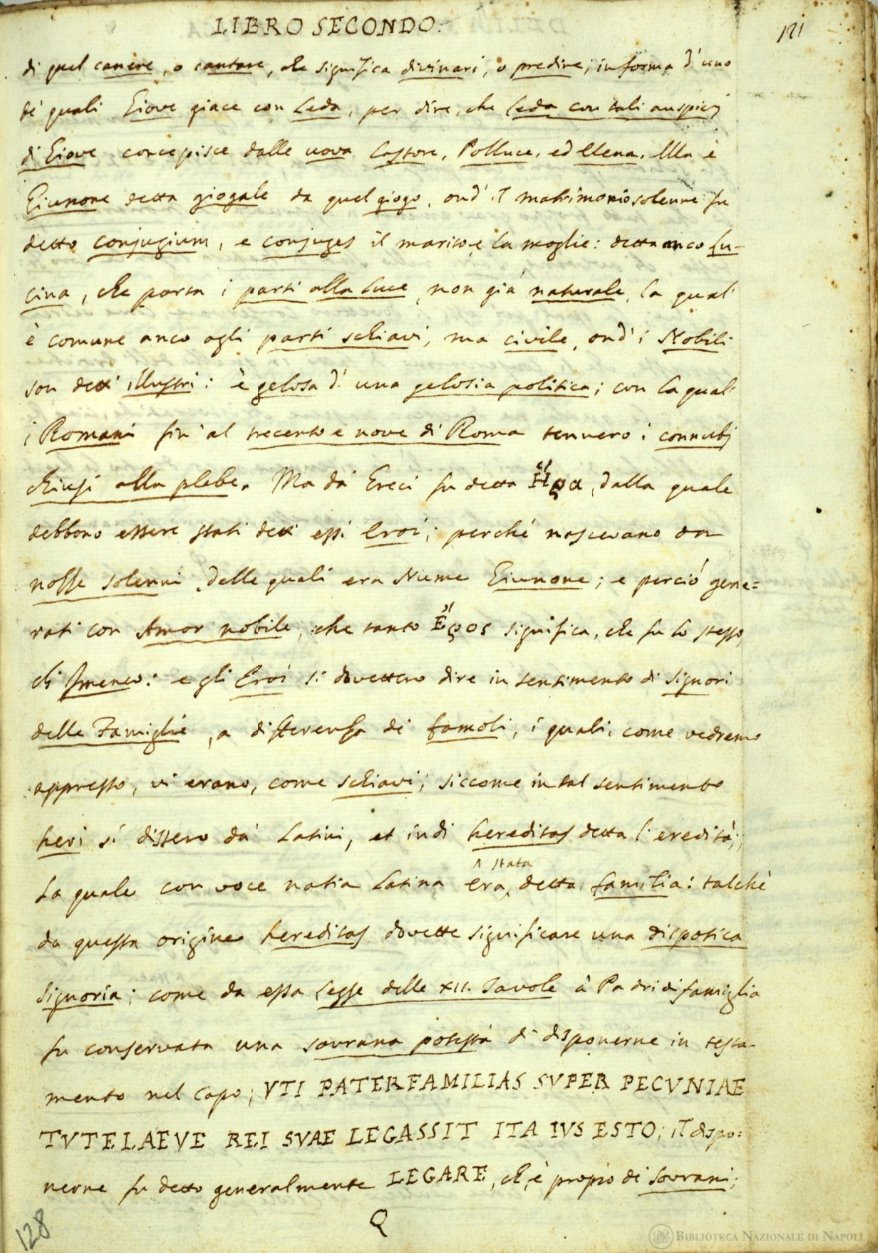 LIBRO SECONDO.
121
di quel canere, o cantare, che significa divinari, o predire; in forma d' uno
de' quali Giove giace con Leda, per dire, che Leda con tali auspicj
di Giove concepisce dalle uova Castore, Polluce, ed Elena. Ella è
Giunone detta giogale da quel giogo, ond' il matrimonio solenne fu
detto conjugium, e conjuges il marito, e la moglie: detta anco Lu-
cina, che porta i parti alla luce, non già naturale, la qual'
è comune anco agli parti schiavi, ma civile, ond' i Nobili
son detti illustri: è gelosa d' una gelosia politica; con la qual'
i Romani fin' al trecento e nove di Roma tennero i connubj
chiusi alla plebe. Ma da' Greci fu detta Ἥρα, dalla quale
debbono essere stati detti essi Eroi; perchè nascevano da
nozze solenni, delle quali era Nume Giunone; e perciò gene-
rati con Amor nobile, che tanto Ἔρος significa, che fu lo stesso,
ch' Imeneo: e gli Eroi si dovettero dire in sentimento di Signori
delle Famiglie, a differenza de' famoli, i quali, come vedremo
appresso, vi erano, come schiavi; siccome in tal sentimento
heri si dissero da' Latini, et indi hereditas detta l' eredità;
la quale con voce natia Latina era stata detta familia: talchè
da questa origine hereditas dovette significare una dispotica
signoria; come da essa Legge delle XII. Tavole a' Padri di famiglia
fu conservata una sovrana potestà di disponerne in testa-
mento nel capo; VTI PATERFAMILIAS SVPER PECVNIAE
TVTELAEVE REI SVAE LEGASSIT ITA IVS ESTO; il dispo-
nerne fu detto generalmente LEGARE, ch' è propio di Sovrani;
Q
128
BIBLIOTECA NAZIONALE DI NAPOLI